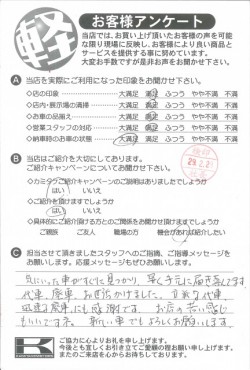 軽
お客様アンケート
当店では、お買い上げ頂いたお客様の声を可能
な限り現場に反映し、お客様により良い商品と
サービスを提供する事に努めています。
大変お手数ですが是非お声をお聞かせ下さい。
A 当店を実際にご利用になった印象をお聞かせ下さい。
◇店の印象 大満足 満足 ふつう やや不満 不満
◇店内・展示場の清掃 大満足 満足 ふつう やや不満 不満
◇お車の品揃え 大満足 満足 ふつう やや不満 不満
◇営業スタッフの対応 大満足 満足 ふつう やや不満 不満
◇納車時のお車の状態 大満足 満足 ふつう やや不満 不満
B 当店はご紹介を大切にしております。
ご紹介キャンペーンについてお聞かせ下さい。
◇カミタケご紹介キャンペーンのご説明はありましたでしょうか
はい いいえ
◇ご紹介をお聞かせ頂けますでしょうか
はい いいえ
◇具体的にご紹介頂ける方とのご関係をお聞かせ頂けますでしょうか
ご親族 ご友人 職場の方 機会があれば紹介したい
C 担当させて頂きましたスタッフへのご指摘、ご指導メッセージを
お願いします。応援メッセージもぜひお願いします。
気にいった車がすぐに見つかり、早く手元に届き喜んでます
代車、廃車、お世話かけました。立派な代車、
迅速な廃車にも感謝です。お店の若い感じ
もいいですネ。新しい車でもよろしくお願いします
K
ご協力に心よりお礼を申し上げます。
今後とも宜しくお引き立てご愛顧の程お願い申し上げます。
またのご来店を心からお待ちしております。